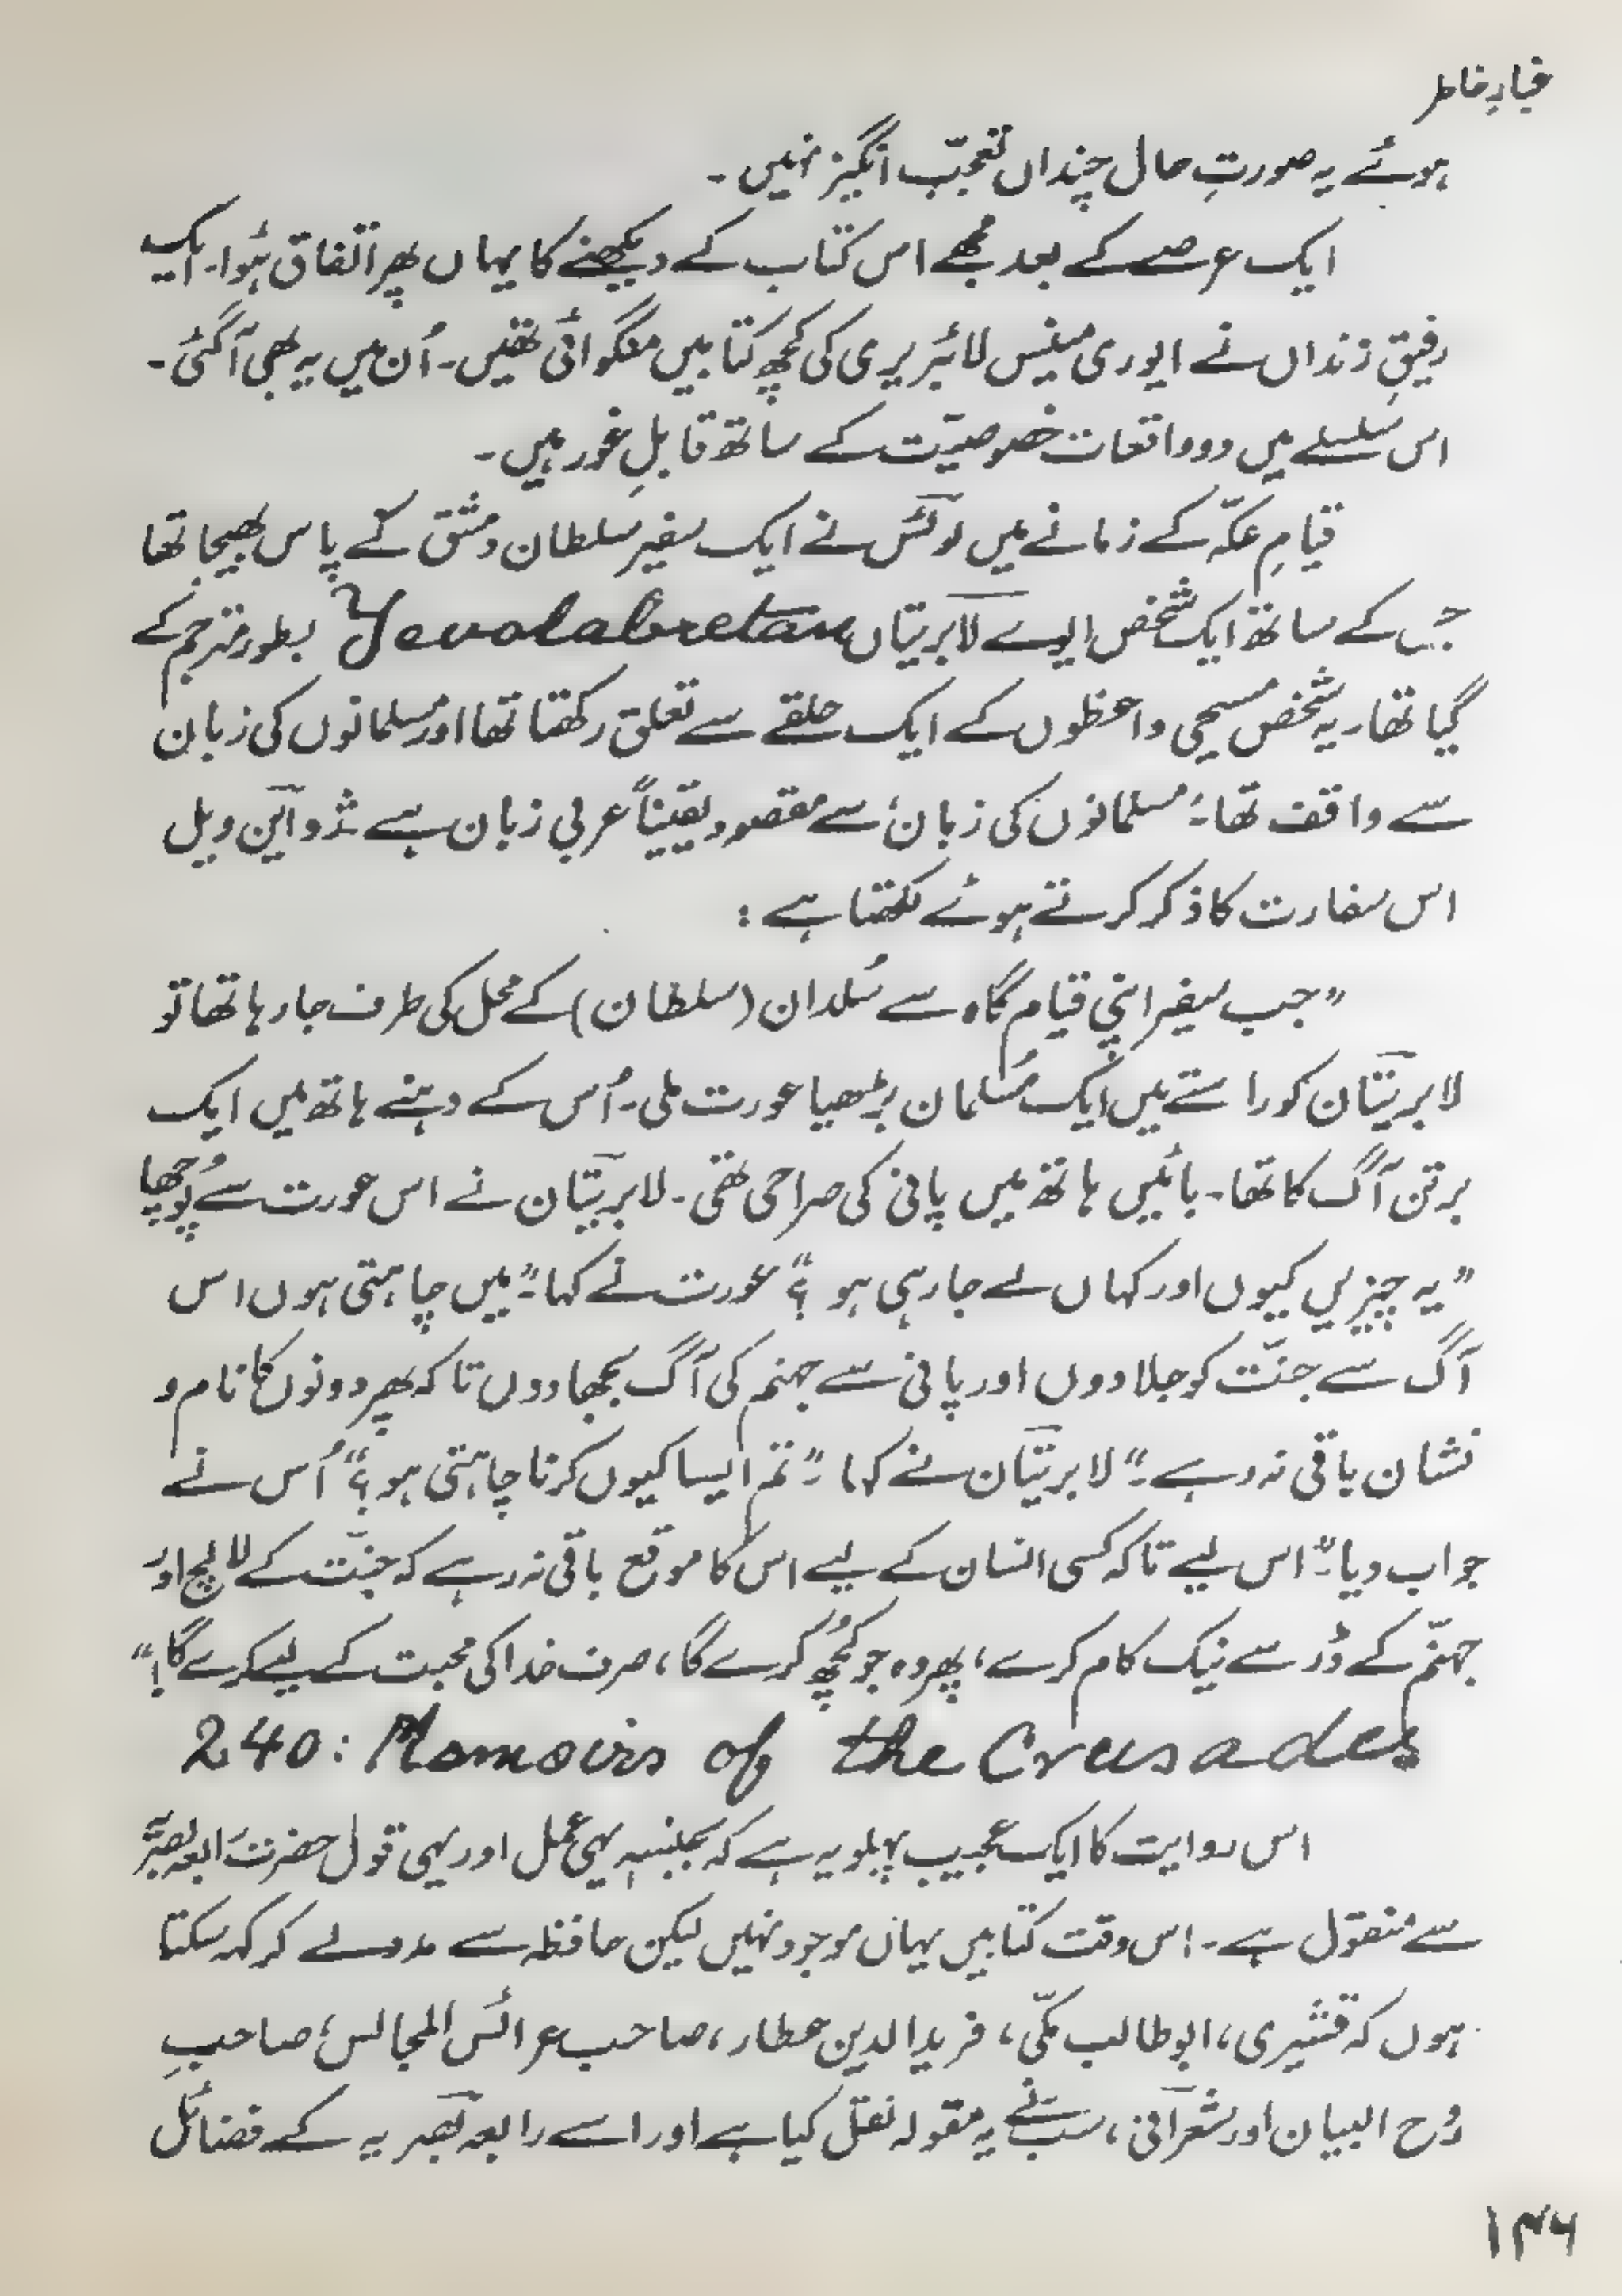 غبارِ خاطر
ہوئے یہ صورتِ حال چنداں تعجّب انگیز نہیں۔
ایک عرصے کے بعد مجھے اس کتاب کے دیکھنے کا یہاں پھر اتفاق ہُوا۔ ایک
رفیقِ زنداں نے ایوری مینس لائبریری کی کچھ کتابیں منگوائی تھیں۔ اُن میں یہ بھی آگئی۔
اس سلسلے میں دو واقعات خصوصیّت کے ساتھ قابلِ غور ہیں۔
قیامِ عکّہ کے زمانے میں لوئس نے ایک سفیر سلطان دمشق کے پاس بھیجا تھا
جس کے ساتھ ایک شخص ایوے لابریتاں Yevolabretan بطور مترجم کے
گیا تھا۔ یہ شخص مسیحی واعظوں کے ایک حلقے سے تعلق رکھتا تھا اور مسلمانوں کی زبان
سے واقف تھا۔ "مسلمانوں کی زبان" سے مقصود یقیناً عربی زبان ہے۔ ژوائین ویل
اس سفارت کا ذکر کرتے ہوئے لکھتا ہے :
"جب سفیر اپنی قیام گاہ سے سُلدان (سلطان) کے محل کی طرف جا رہا تھا تو
لابریتان کو راستے میں ایک مُسلمان بڑھیا عورت ملی۔ اُس کے دہنے ہاتھ میں ایک
برتن آگ کا تھا۔ بائیں ہاتھ میں پانی کی صراحی تھی۔ لابریتان نے اس عورت سے پُوچھا
"یہ چیزیں کیوں اور کہاں لے جا رہی ہو ؟" عورت نے کہا۔ "میں چاہتی ہوں اس
آگ سے جنّت کو جلا دوں اور پانی سے جہنم کی آگ بجھا دوں تاکہ پھر دونوں کا نام و
نشان باقی نہ رہے۔" لابریتان نے کہا۔ "تم ایسا کیوں کرنا چاہتی ہو ؟" اُس نے
جواب دیا۔ "اس لیے تاکہ کسی انسان کے لیے اس کا موقع باقی نہ رہے کہ جنّت کے لالچ اور
جہنّم کے ڈر سے نیک کام کرے، پھر وہ جو کچھ کرے گا، صرف خدا کی محبت کے لیے کرے گا!"
240: Memoirs of the Crusades
اس روایت کا ایک عجیب پہلو یہ ہے کہ بجنسہٖ یہی عمل اور یہی قول حضرت رابعہ بصریہؒ
سے منقول ہے۔ اس وقت کتابیں یہاں موجود نہیں لیکن حافظہ سے مدد لے کر کہہ سکتا
ہوں کہ قشیری، ابوطالب مکّی، فریدالدین عطار، صاحب عرائس المجالس، صاحبِ
رُح البیان اور شعرانی، سب نے یہ مقولہ نقل کیا ہے اور اسے رابعہ بصریہ کے فضائل
۱۴۶